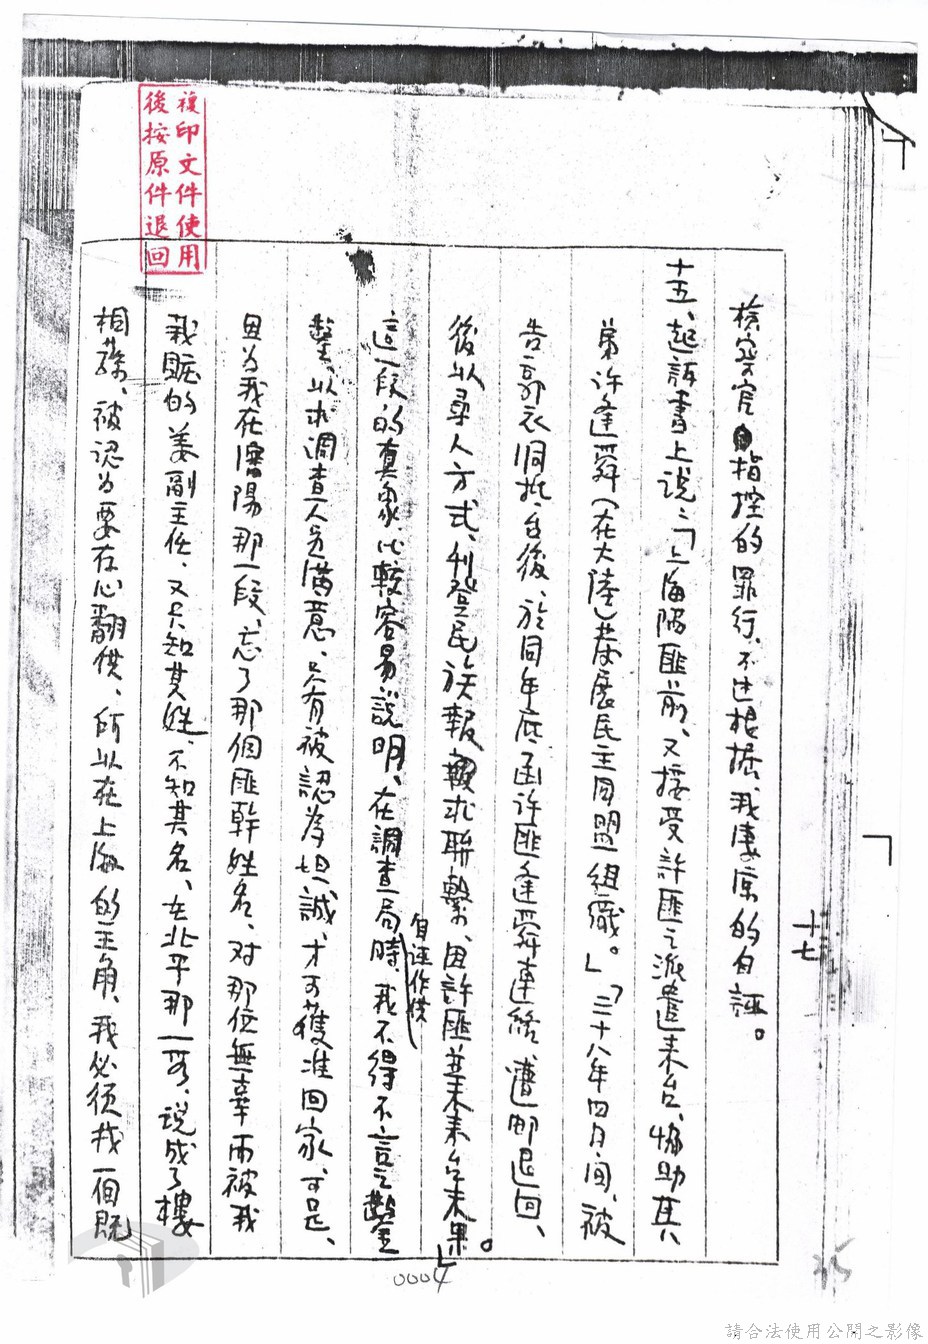 複印文件使用
後按原件退回
十七
檢察官指控的罪行、不过根据、我凄凉的自誣。
十五、起訴書上说：「上海陷匪前、又接受許匪之派遣来台、協助其
弟许逢舜(在大陸)發展民主同盟组織。」「三十八年四月间、被
告郭衣洞抵台後、於同年底函许匪逢舜連絡、遭邮退回、
後以尋人方式、刊登民族報報求聯繫、因許匪並未来台未果。」
這一段的真象比較容易説明、在調查局時、我不得不自誣作供言之鑿
鑿、以求調查人员满意、只有被認為坦誠、才可獲准回家、可是、
因为我在瀋陽那一段、忘了那個匪幹姓名、对那位無辜而被我
栽贓的姜副主任、又只知其姓、不知其名、在北平那一段、说成了樓
相蓀、被认为要存心翻供、所以在上海的主角、我必须找一個既
0004
35
請合法使用公開之影像